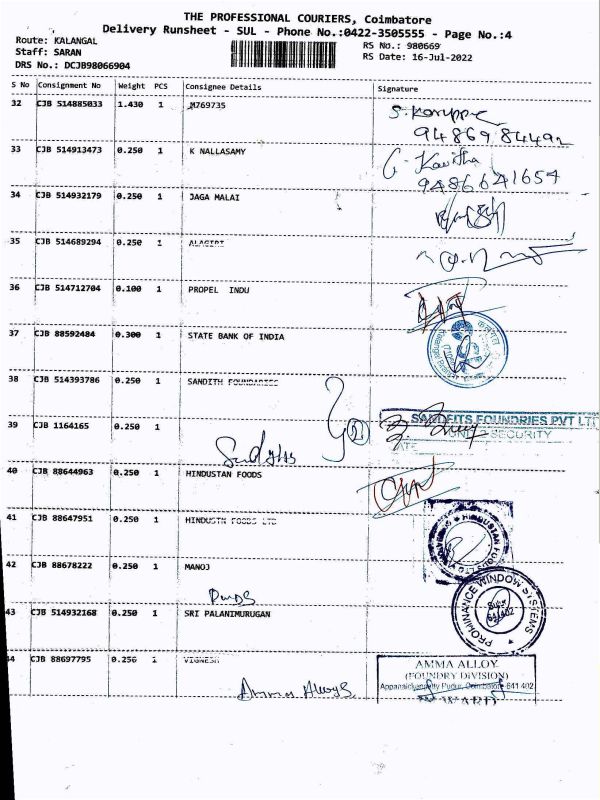 THE PROFESSIONAL COURIERS, Coimbatore
Delivery Runsheet - SUL - Phone No.:0422-3505555 - Page No.:4
Route: KALANGAL
Staff: SARAN
DRS No.: DCJB98066904
RS No.: 980669
RS Date: 16-Jul-2022
S No Consignment No Weight PCS Consignee Details Signature
32 CJB 514885033 1.430 1 M769735
9486984492
33 CJB 514913473 0.250 1 K NALLASAMY
G. Kavitha
9486641654
34 CJB 514932179 0.250 1 JAGA MALAI
35 CJB 514689294 0.250 1 ALAGIRI
36 CJB 514712704 0.100 1 PROPEL INDU
37 CJB 88592484 0.300 1 STATE BANK OF INDIA
38 CJB 514393786 0.250 1 SANDITH FOUNDARIES
39 CJB 1164165 0.250 1
SANDFITS FOUNDRIES PVT LTD
SECURITY
40 CJB 88644963 0.250 1 HINDUSTAN FOODS
41 CJB 88647951 0.250 1 HINDUSTN FOODS LTD
HINDUSTAN FOODS LTD
42 CJB 88678222 0.250 1 MANOJ
PROMINANCE WINDOW SYSTEMS
641 402
43 CJB 514932168 0.250 1 SRI PALANIMURUGAN
44 CJB 88697795 0.250 1 VIGNESH
AMMA ALLOY
(FOUNDRY DIVISION)
Pudur, Coimbatore 641 402
Amma Alloys